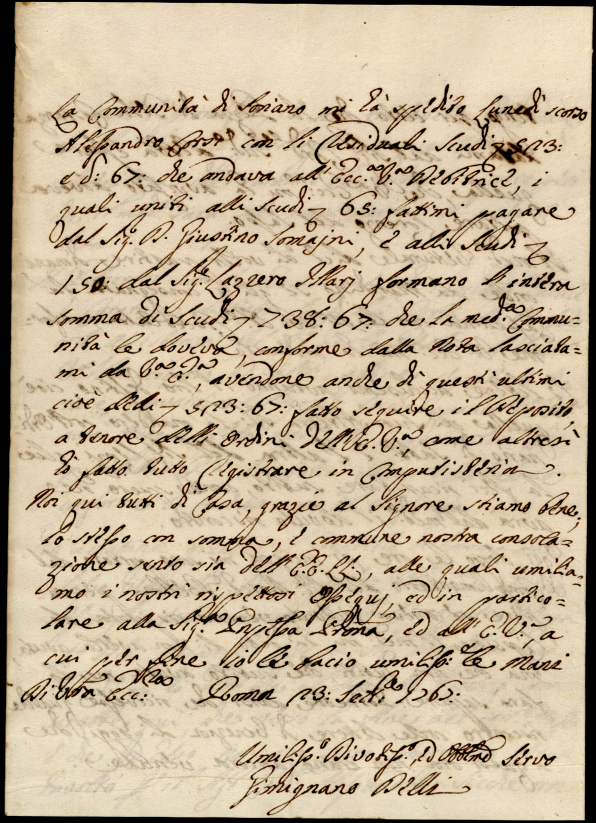 La Communità di Soriano mi hà spedito Lunedì scorso
Alessandro Corsi con li residuali Scudi 523:
e d: 67: che andava all' Ecc.ª V.ª Debitrice, i
quali uniti alli Scudi 65: fattimi pagare
dal Sig.r D. Giustino Somajni, è alli Scudi
150: dal Sig.r Lazzero Illarj formano l'intera
somma di Scudi 738: 67: che la med.ª Commu=
nità le doveva, conforme dalla Nota lasciata=
mi da V.ª E.ª, avendone anche di questi ultimi
cioè delli 523: 67: fatto seguire il Deposito,
a tenore delli Ordini dell' E. V.ª, come altresì
hò fatto tutto registrare in Computisteria.
Noi quì tutti di Casa, grazie al Signore stiamo bene,
lo stesso con somma, è commune nostra consola=
zione sento sia dell' E.E. LL., alle quali umilia=
mo i nostri rispettosi ossequj, ed in partico=
lare alla Sig.ra Pñpessa Prona, ed all' E. V.ª, a
cui per fine io le bacio umiliss.e le mani
Di Vra Ecc.za Roma 23: Sett.e 1767:
Umiliss.o Divotiss.o, ed Obbmo Servo
Gimignano Belli